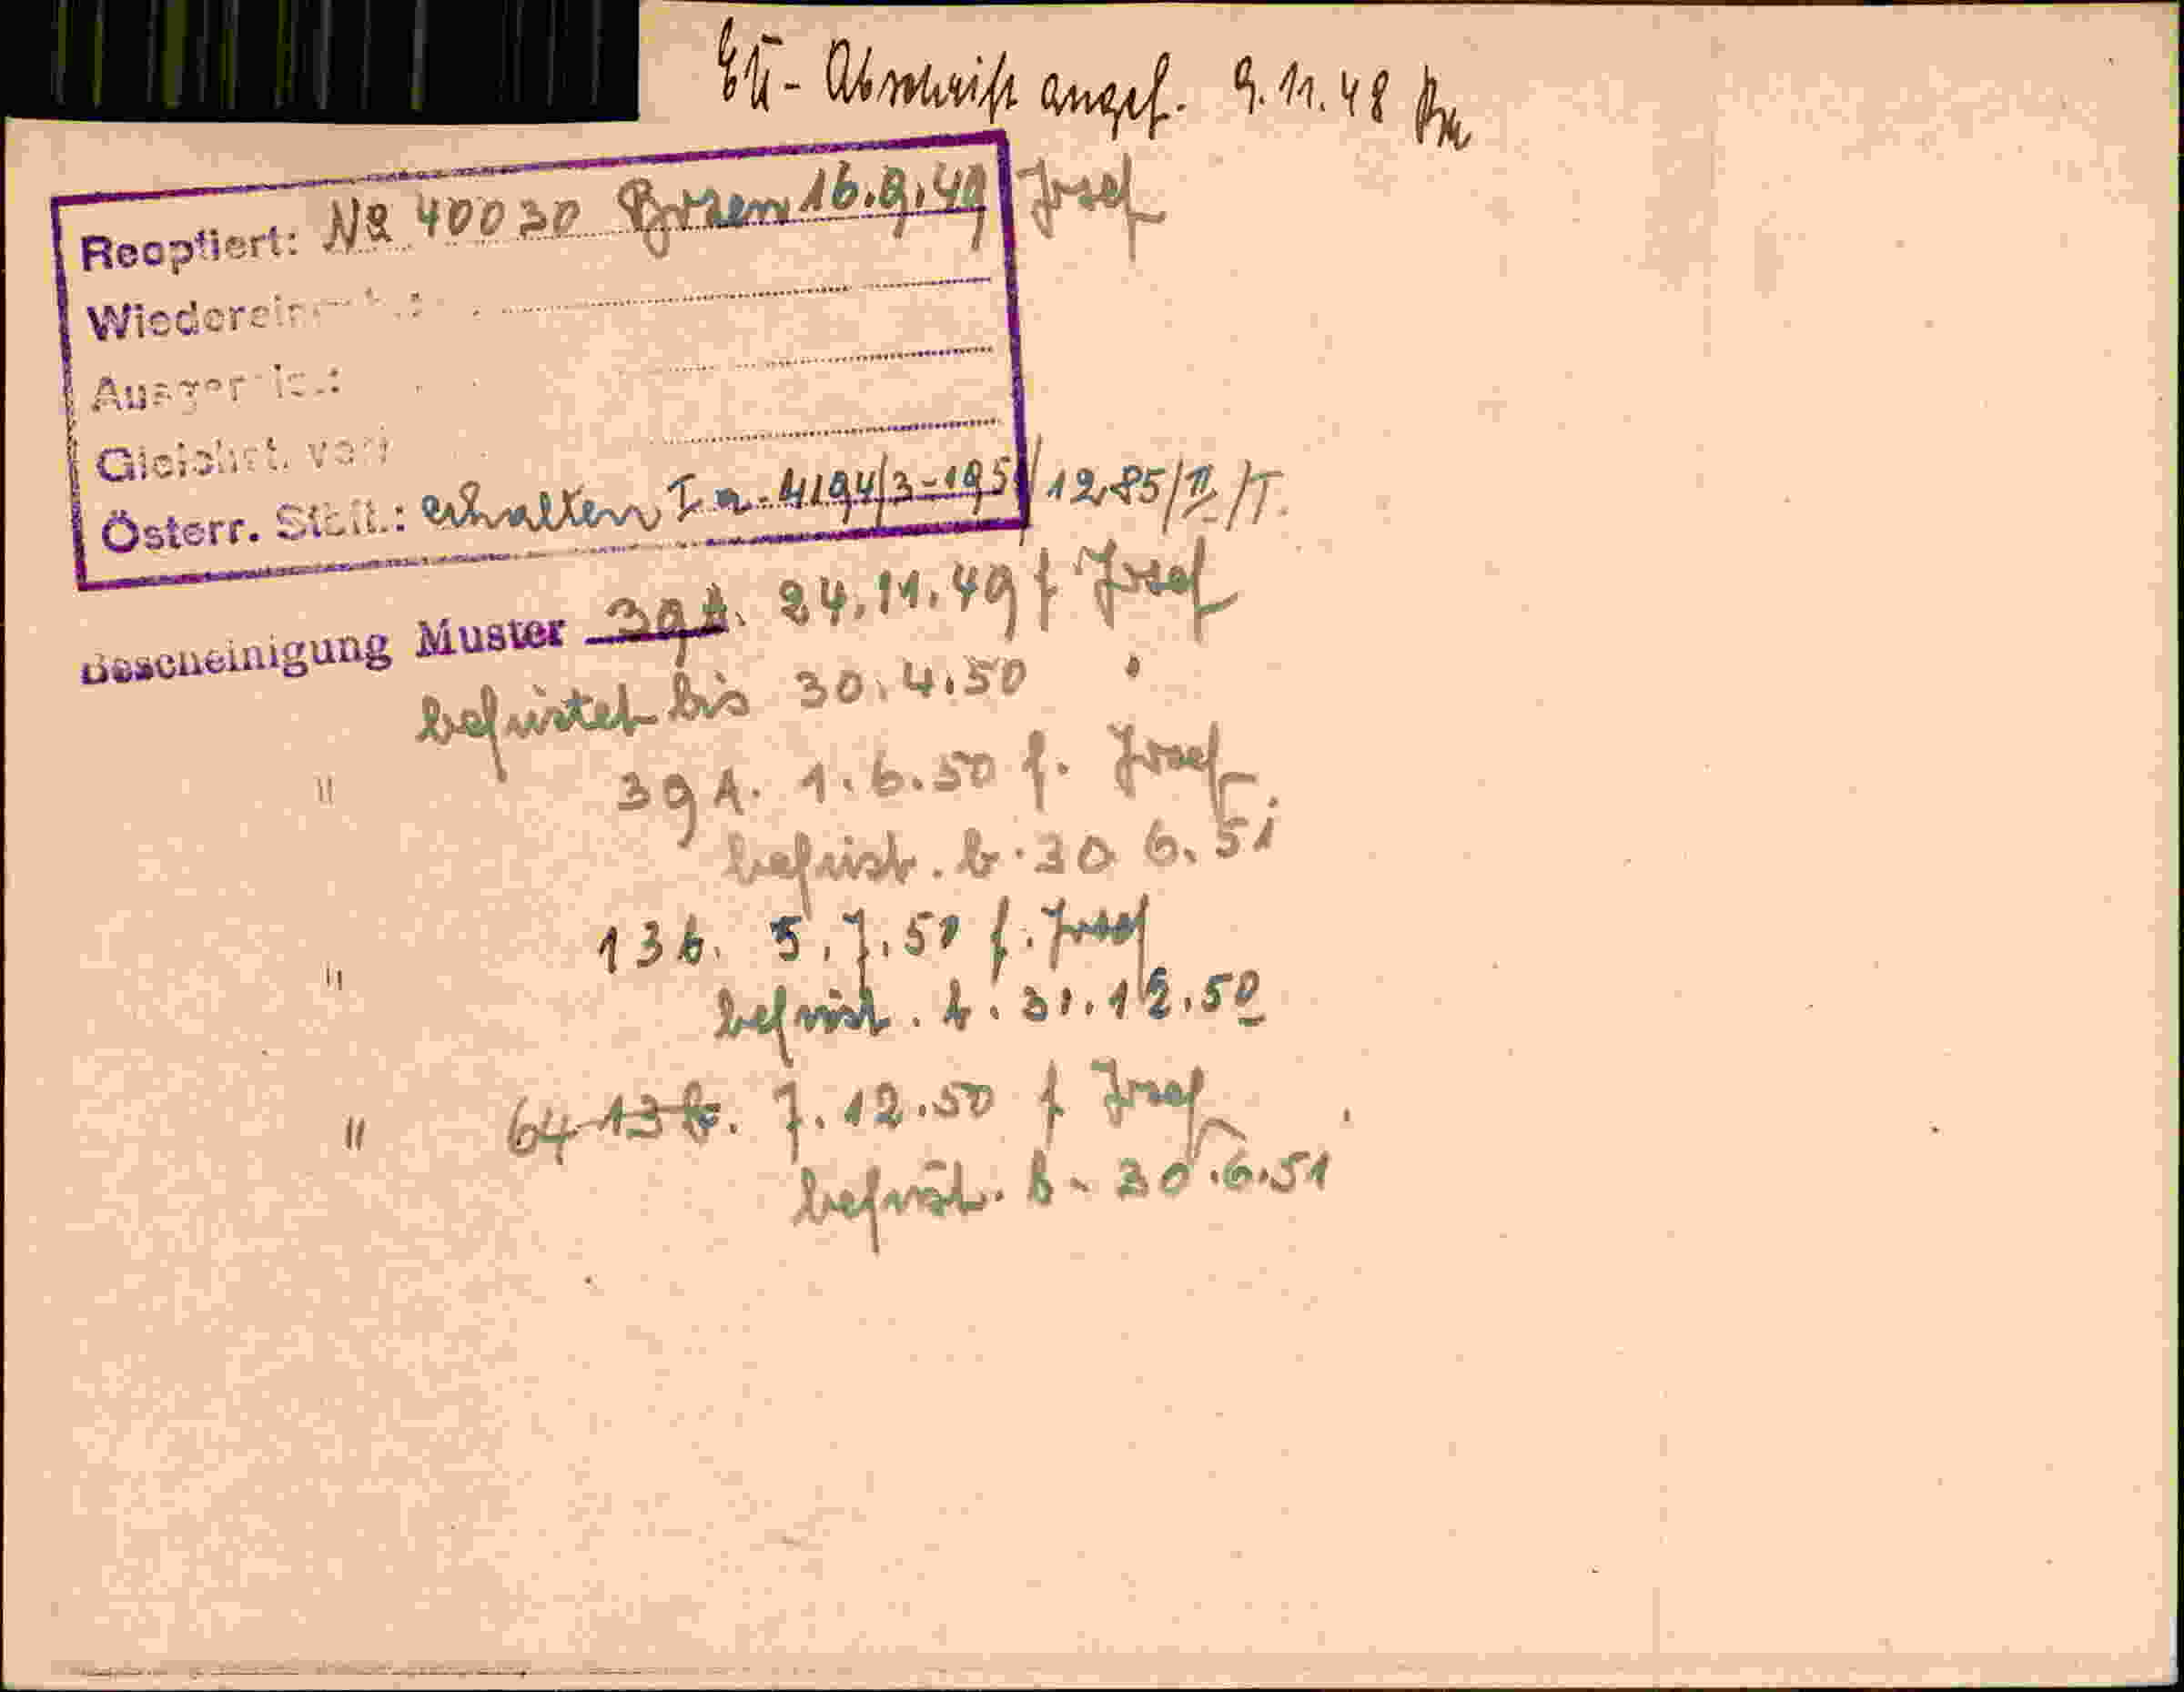 EU - Abschrift angef. 9.11.48
Reoptiert: No 40030 Bozen 16.9.49 Josef
Österr. Stbü.: erhalten I a - 4194/3-1951/1285/II/T.
Bescheinigung Muster 39A. 24.11.49 f Josef
befristet bis 30.4.50
" 39A. 1.6.50 f. Josef
befrist. b. 30 6. 51
" 13b. 5.7.50 f. Josef
befrist. b. 31.12.50
" 64 13b. 7.12.50 f Josef
befrist. b. 30.6.51